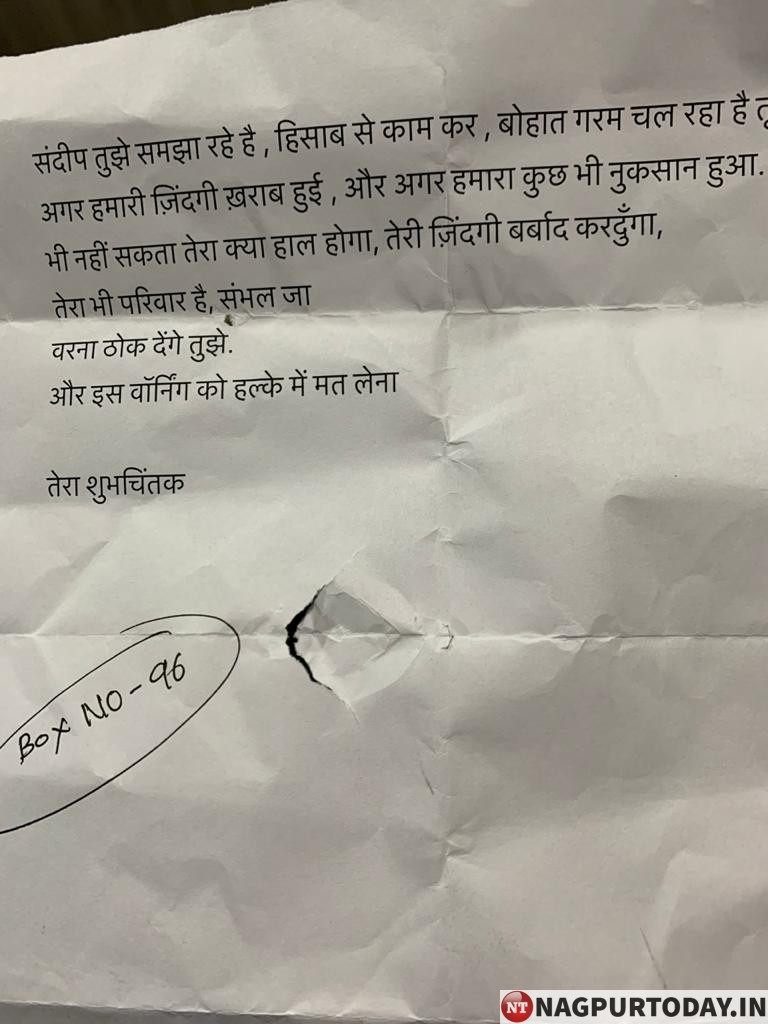 संदीप तुझे समझा रहे है , हिसाब से काम कर , बोहात गरम चल रहा है तू
अगर हमारी ज़िंदगी ख़राब हुई , और अगर हमारा कुछ भी नुकसान हुआ.
भी नहीं सकता तेरा क्या हाल होगा, तेरी ज़िंदगी बर्बाद करदुँगा,
तेरा भी परिवार है, संभल जा
वरना ठोक देंगे तुझे.
और इस वॉर्निंग को हल्के में मत लेना
तेरा शुभचिंतक
BOX NO-96
NT NAGPURTODAY.IN